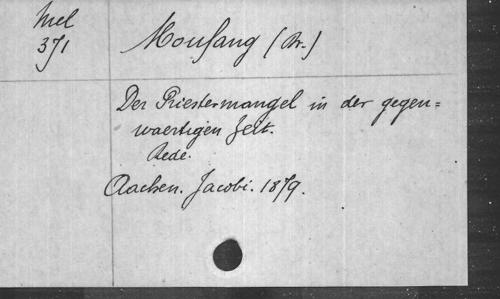 Mel
371
Moufang (Dr.)
Der Priestermangel in der gegen=
waertigen Zeit.
Rede.
Aachen. Jacobi. 1879.